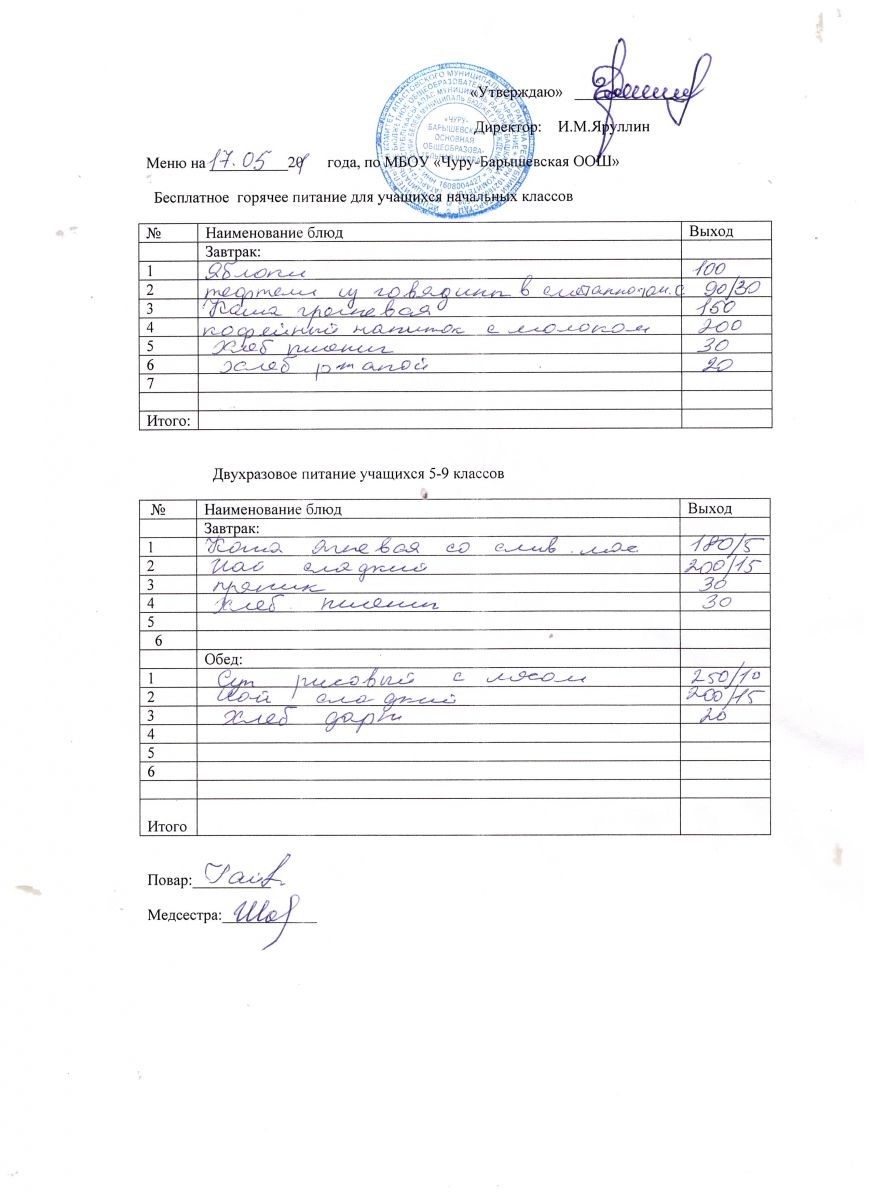 «Утверждаю»
Директор: И.М.Яруллин
Меню на 17.05 20 года, по МБОУ «Чуру-Барышевская ООШ»
«ЧУРУ-
БАРЫШЕВСКАЯ
ОСНОВНАЯ
ОБЩЕОБРАЗОВА-
ИНН 1608004427
Бесплатное горячее питание для учащихся начальных классов
№ Наименование блюд Выход
Завтрак:
1 Яблоки 100
2 тефтели из говядины в 90/30
3 Каша гречневая 150
4 кофейный напиток с молоком 200
5 Хлеб пшенич 30
6 Хлеб ржаной 20
7
Итого:
Двухразовое питание учащихся 5-9 классов
№ Наименование блюд Выход
Завтрак:
1 Каша ячневая со слив. мас 180/5
2 Чай сладкий 200/15
3 пряник 30
4 Хлеб пшенич 30
5
6
Обед:
1 Суп рисовый с мясом 250/10
2 Чай сладкий 200/15
3 Хлеб 20
4
5
6
Итого
Повар:
Медсестра: